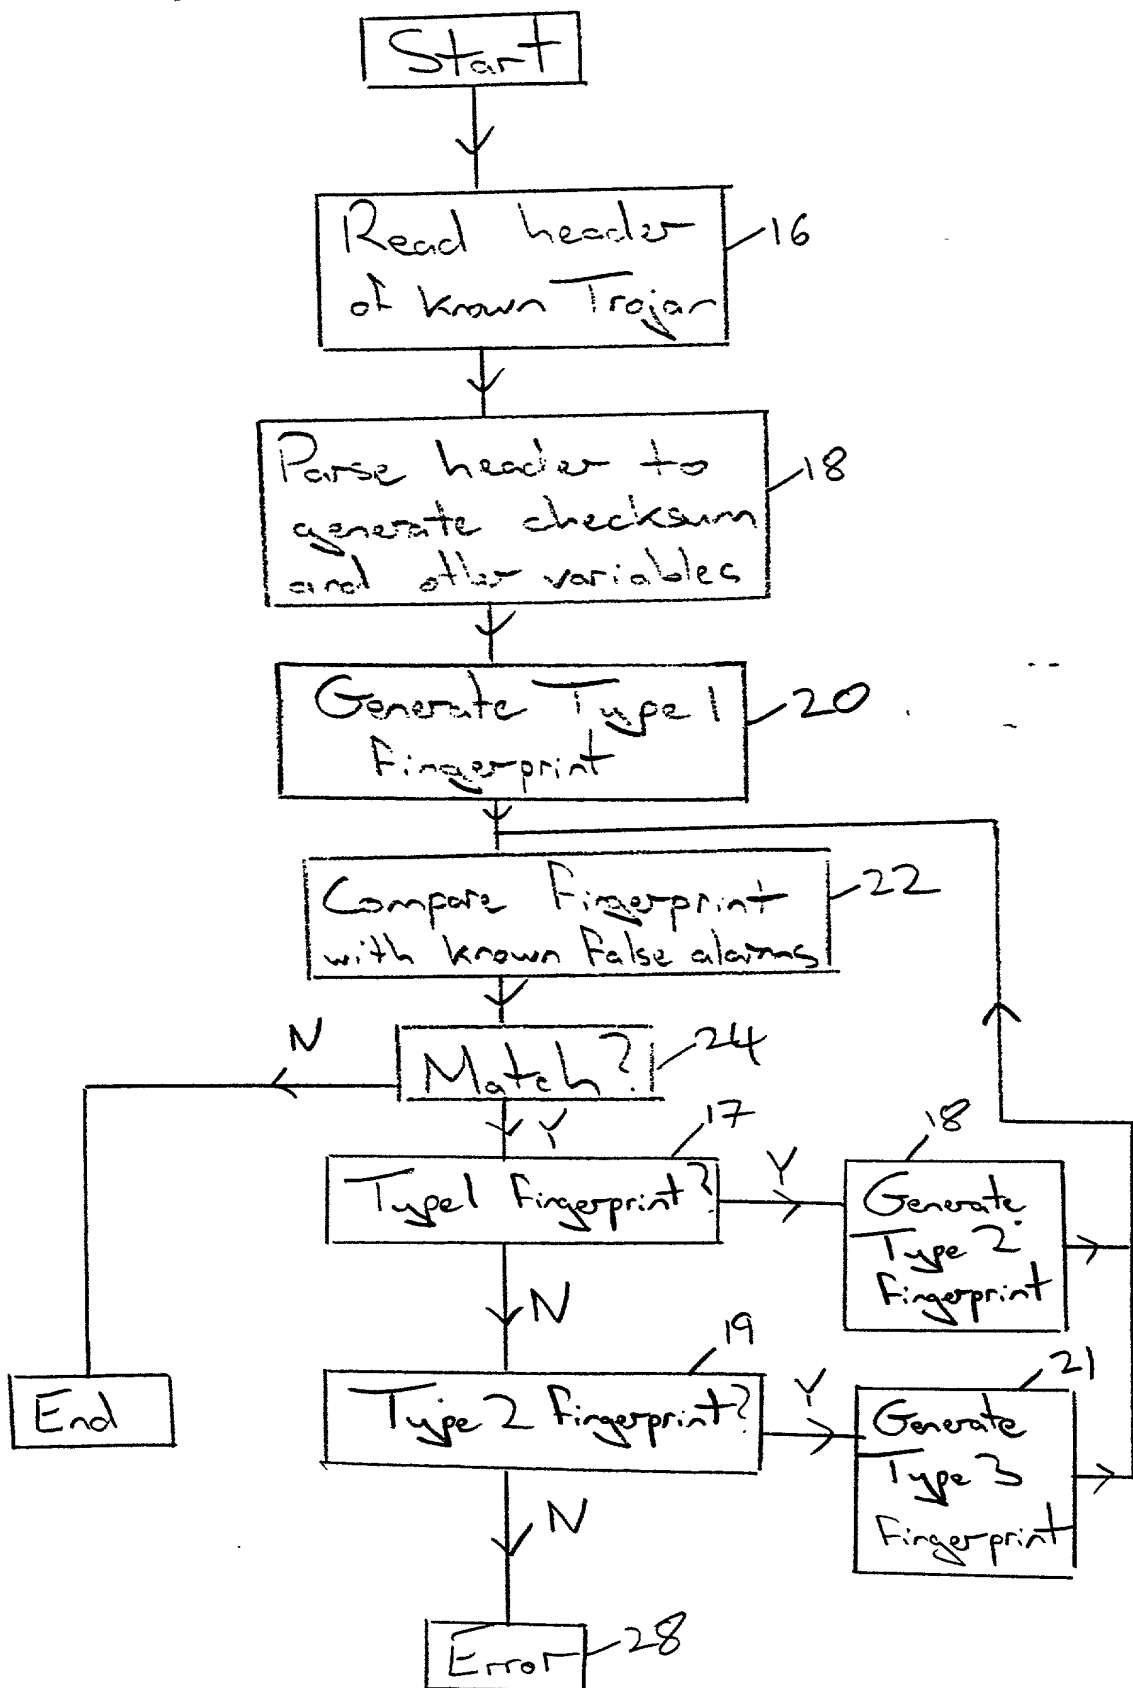 Start
Read header
of known Trojan
16
Parse header to
generate checksum
and other variables
18
Generate Type 1
Fingerprint
20
Compare Fingerprint
with known False alarms
22
N
Match?
24
Y
17
Type1 Fingerprint?
Y
18
Generate
Type 2
Fingerprint
N
19
Type 2 Fingerprint?
Y
21
Generate
Type 3
Fingerprint
End
N
Error
28